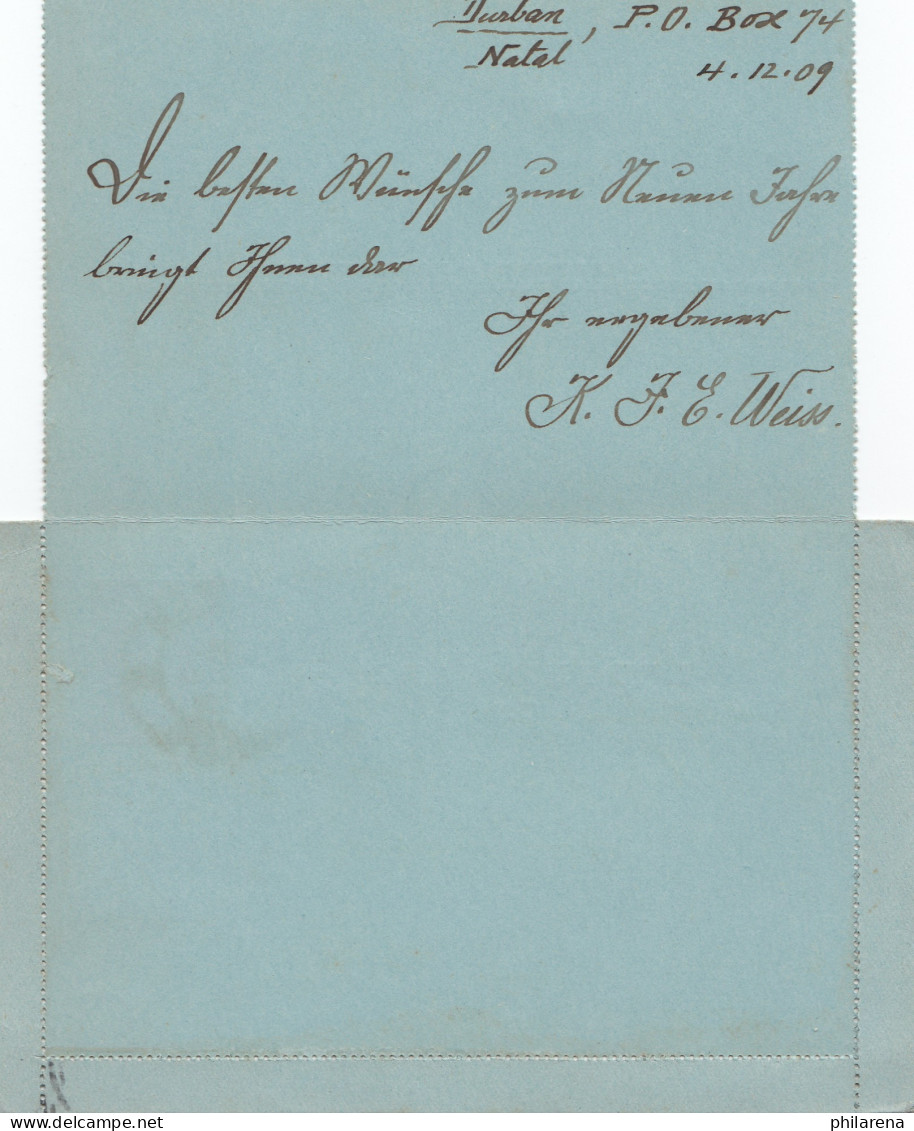 Durban, P.O. Box 74
Natal
4.12.09
Die besten Wünsche zum Neuen Jahre
bringt Ihnen dar
Ihr ergebener
K. F. E. Weiss.
delcampe.net
philarena